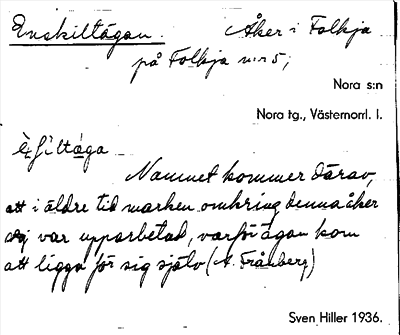 Enskiltågan. Åker i Folkja
på Folkja n:r 5;
Nora s:n
Nora tg., Västernorrl. l.
Namnet kommer därav,
att i äldre tid marken omkring denna åker
ej var upparbetad, varför ågan kom
att ligga för sig själv (A. Frånberg)
Sven Hiller 1936.